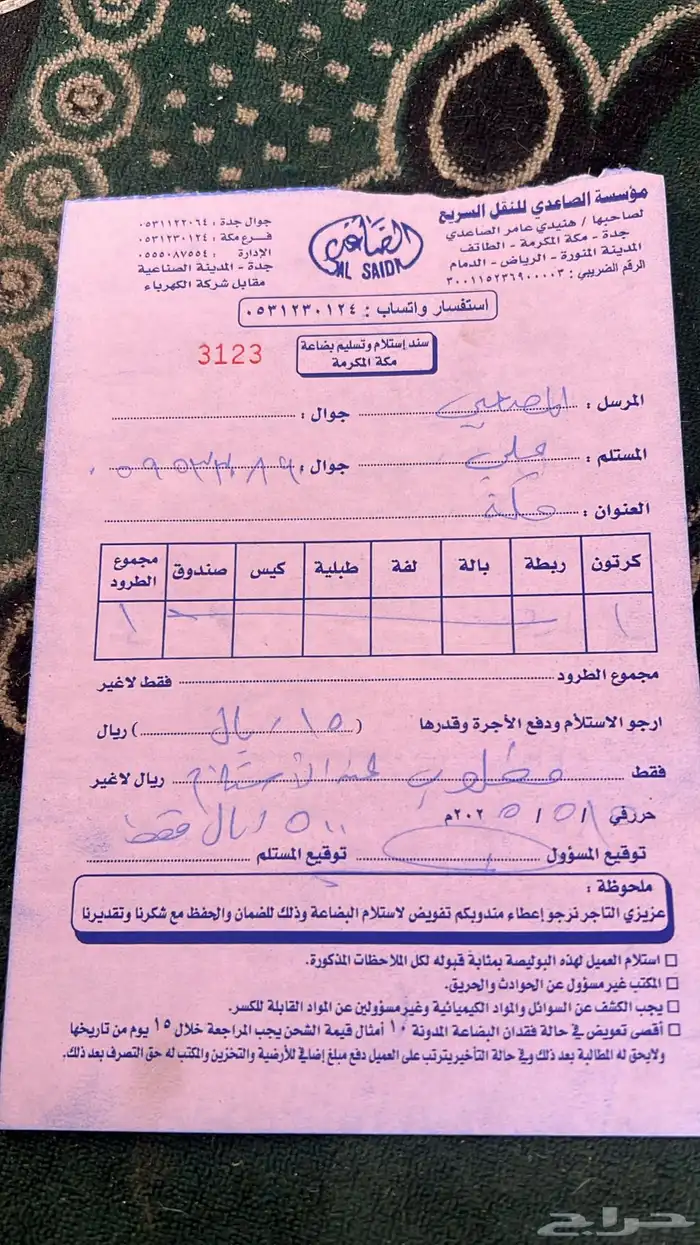 مؤسسة الصاعدي للنقل السريع
لصاحبها / هنيدي عامر الصاعدي
جدة - مكة المكرمة - الطائف
المدينة المنورة - الرياض - الدمام
الرقم الضريبي : ٣٠٠١١٥٢٣٦٩٠٠٠٠٣
الصاعدي
AL SAIDI
جوال جدة : ٠٥٣١١٢٢٠٦٤
فرع مكة : ٠٥٣١٢٣٠١٢٤
الإدارة : ٠٥٥٥٠٨٧٥٥٤
جدة - المدينة الصناعية
مقابل شركة الكهرباء
استفسار واتساب : ٠٥٣١٢٣٠١٢٤
سند إستلام وتسليم بضاعة
مكة المكرمة
3123
المرسل : جوال :
المستلم : علي جوال :
العنوان : مكة
كرتون ربطة بالة لفة طبلية كيس صندوق مجموع الطرود
١ ١
مجموع الطرود فقط لاغير
ارجو الاستلام ودفع الأجرة وقدرها ( ١٥ ريال ) ريال
فقط مطلوب عند الاستلام ريال لاغير
حرر في ٥ / ٥ / ٢٠٢٥م
٥٠٠ ريال فقط
توقيع المسؤول توقيع المستلم
ملحوظة :
عزيزي التاجر نرجو إعطاء مندوبكم تفويض لاستلام البضاعة وذلك للضمان والحفظ مع شكرنا وتقديرنا
استلام العميل لهذه البوليصة بمثابة قبوله لكل الملاحظات المذكورة.
المكتب غير مسؤول عن الحوادث والحريق.
يجب الكشف عن السوائل والمواد الكيميائية وغير مسؤولين عن المواد القابلة للكسر.
أقصى تعويض في حالة فقدان البضاعة المدونة ١٠ أمثال قيمة الشحن يجب المراجعة خلال ١٥ يوم من تاريخها
ولايحق له المطالبة بعد ذلك وفي حالة التأخير يترتب على العميل دفع مبلغ إضافي للأرضية والتخزين والمكتب له حق التصرف بعد ذلك.
حراج